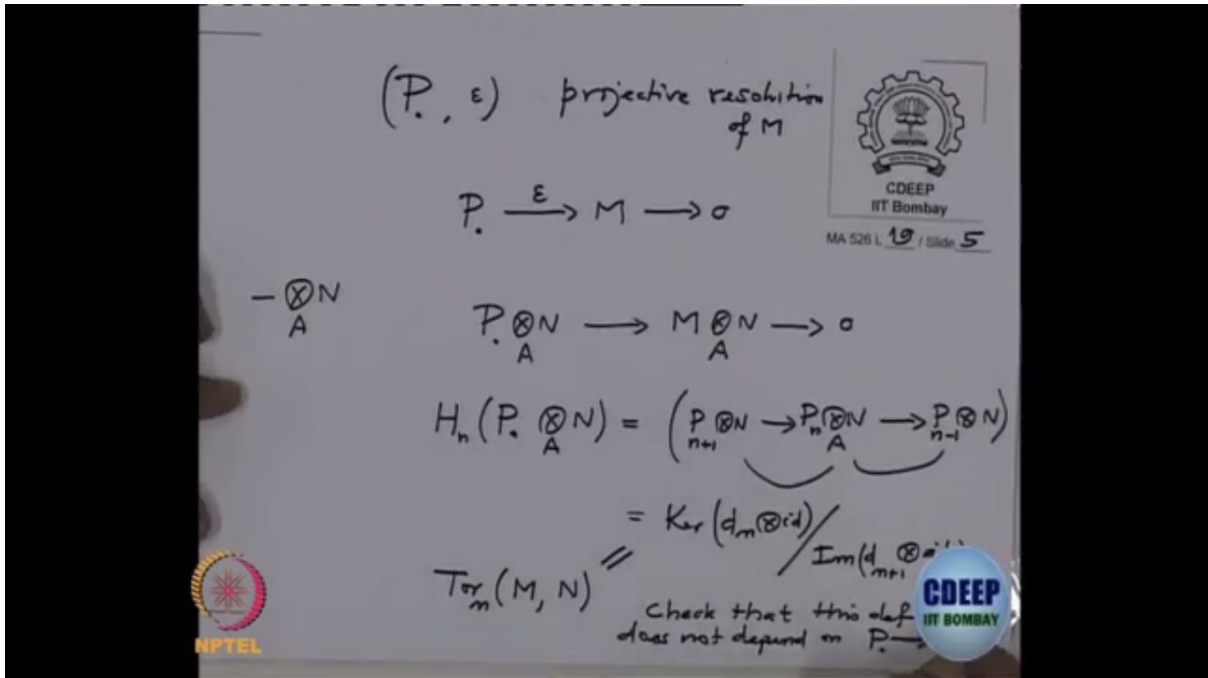 (P., ε) projective resolution
of M
P. --ε--> M ⟶ 0
CDEEP
IIT Bombay
MA 526 L 19 / Slide 5
– ⊗_A N
P. ⊗_A N ⟶ M ⊗_A N ⟶ 0
H_n (P. ⊗_A N) = (P_{n+1} ⊗ N ⟶ P_n ⊗_A N ⟶ P_{n-1} ⊗ N)
= Ker (d_n ⊗ id) / Im (d_{n+1} ⊗
Tor_n (M, N) =
Check that this def
does not depend on P. ⟶
NPTEL
CDEEP
IIT BOMBAY